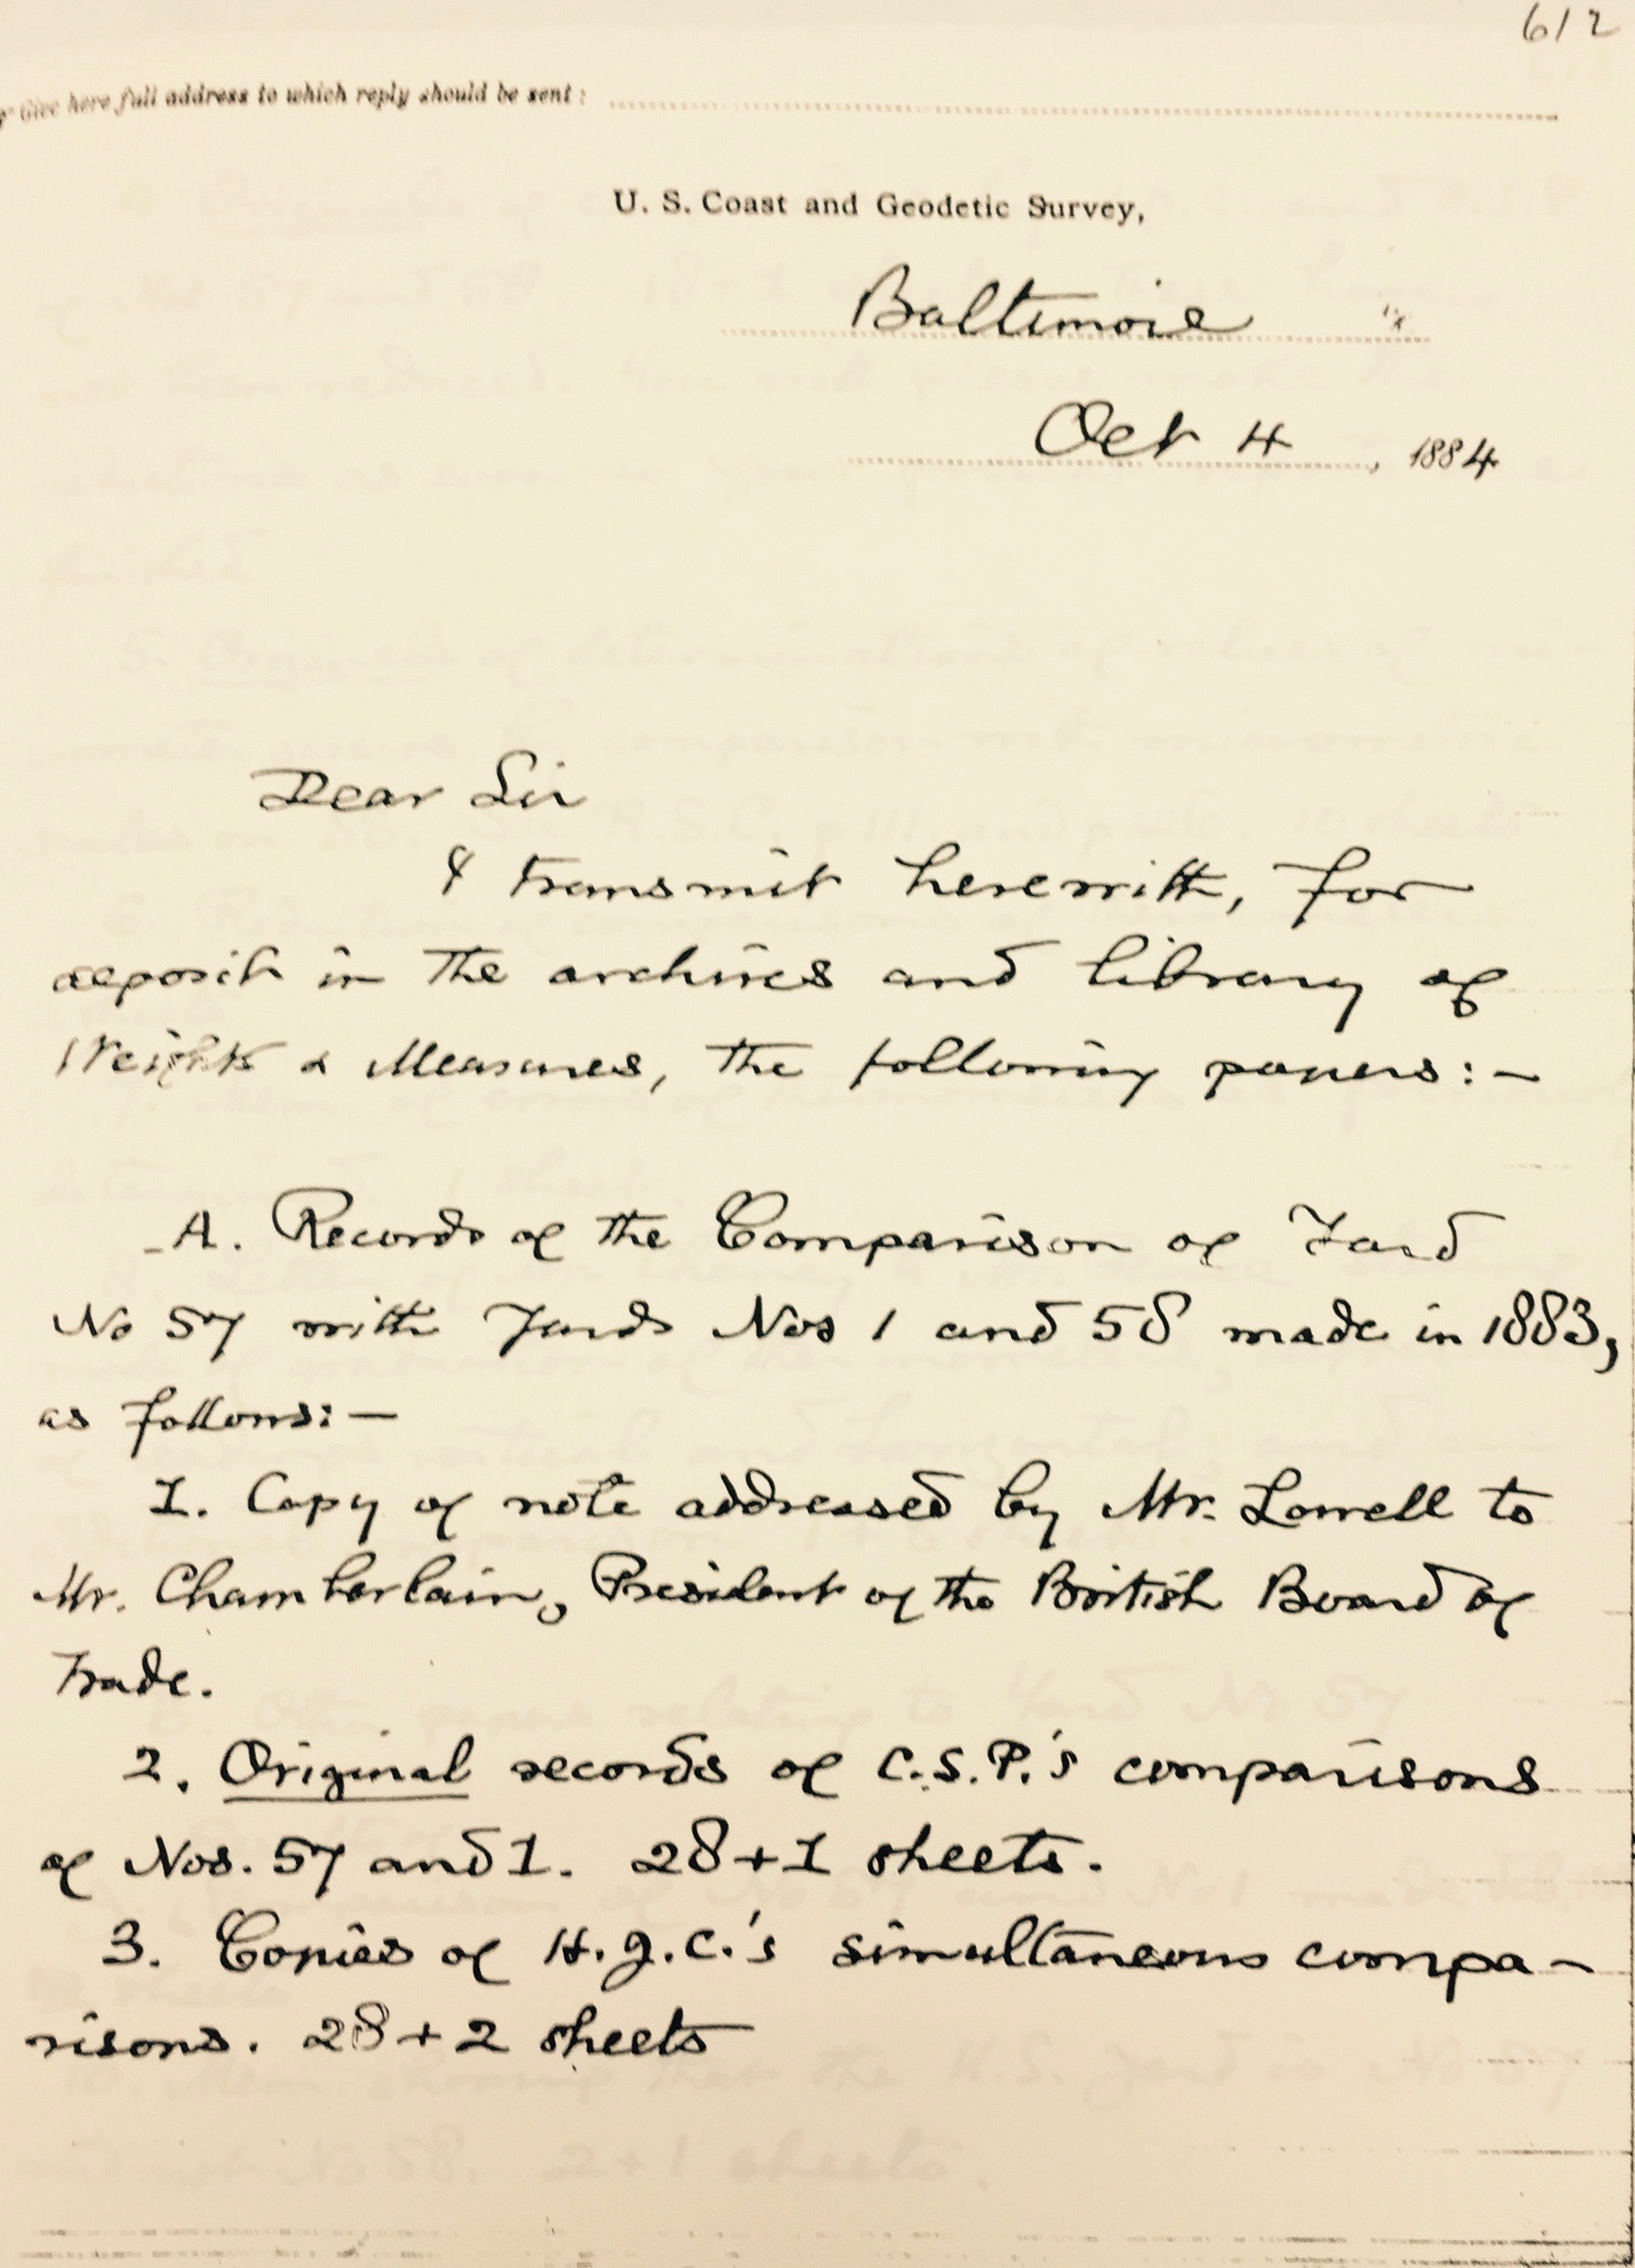 612
Give here full address to which reply should be sent:
U. S. Coast and Geodetic Survey,
Baltimore
Oct 4, 1884
Dear Sir
I transmit herewith, for
deposit in the archives and library of
Weights & Measures, the following papers:—
A. Records of the Comparison of Yard
No 57 with Yards Nos 1 and 58 made in 1883,
as follows:—
1. Copy of note addressed by Mr. Lowell to
Mr. Chamberlain, President of the British Board of
Trade.
2. Original records of C.S.P.'s comparisons
of Nos. 57 and 1. 28+1 sheets.
3. Copies of H.J.C.'s simultaneous compa-
risons. 28+2 sheets